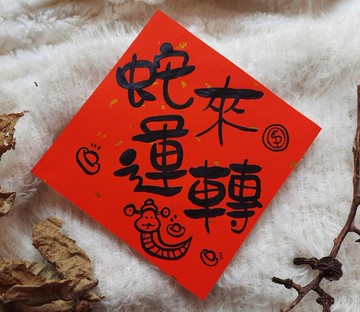 蛇來
運轉
$